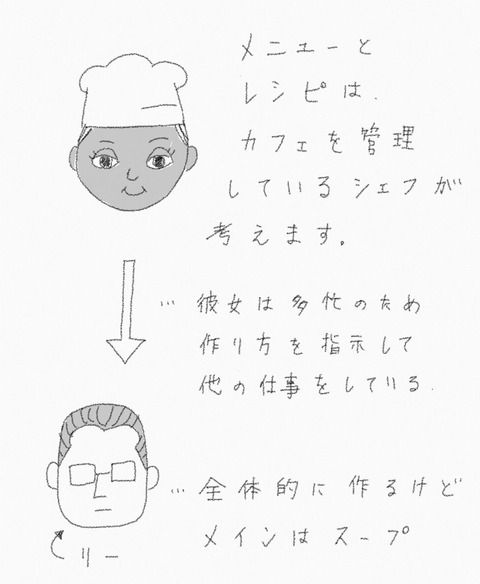 メニューと
レシピは、
カフェを管理
しているシェフが
考えます。
… 彼女は多忙のため
作り方を指示して
他の仕事をしている.
… 全体的に作るけど
メインはスープ
リー